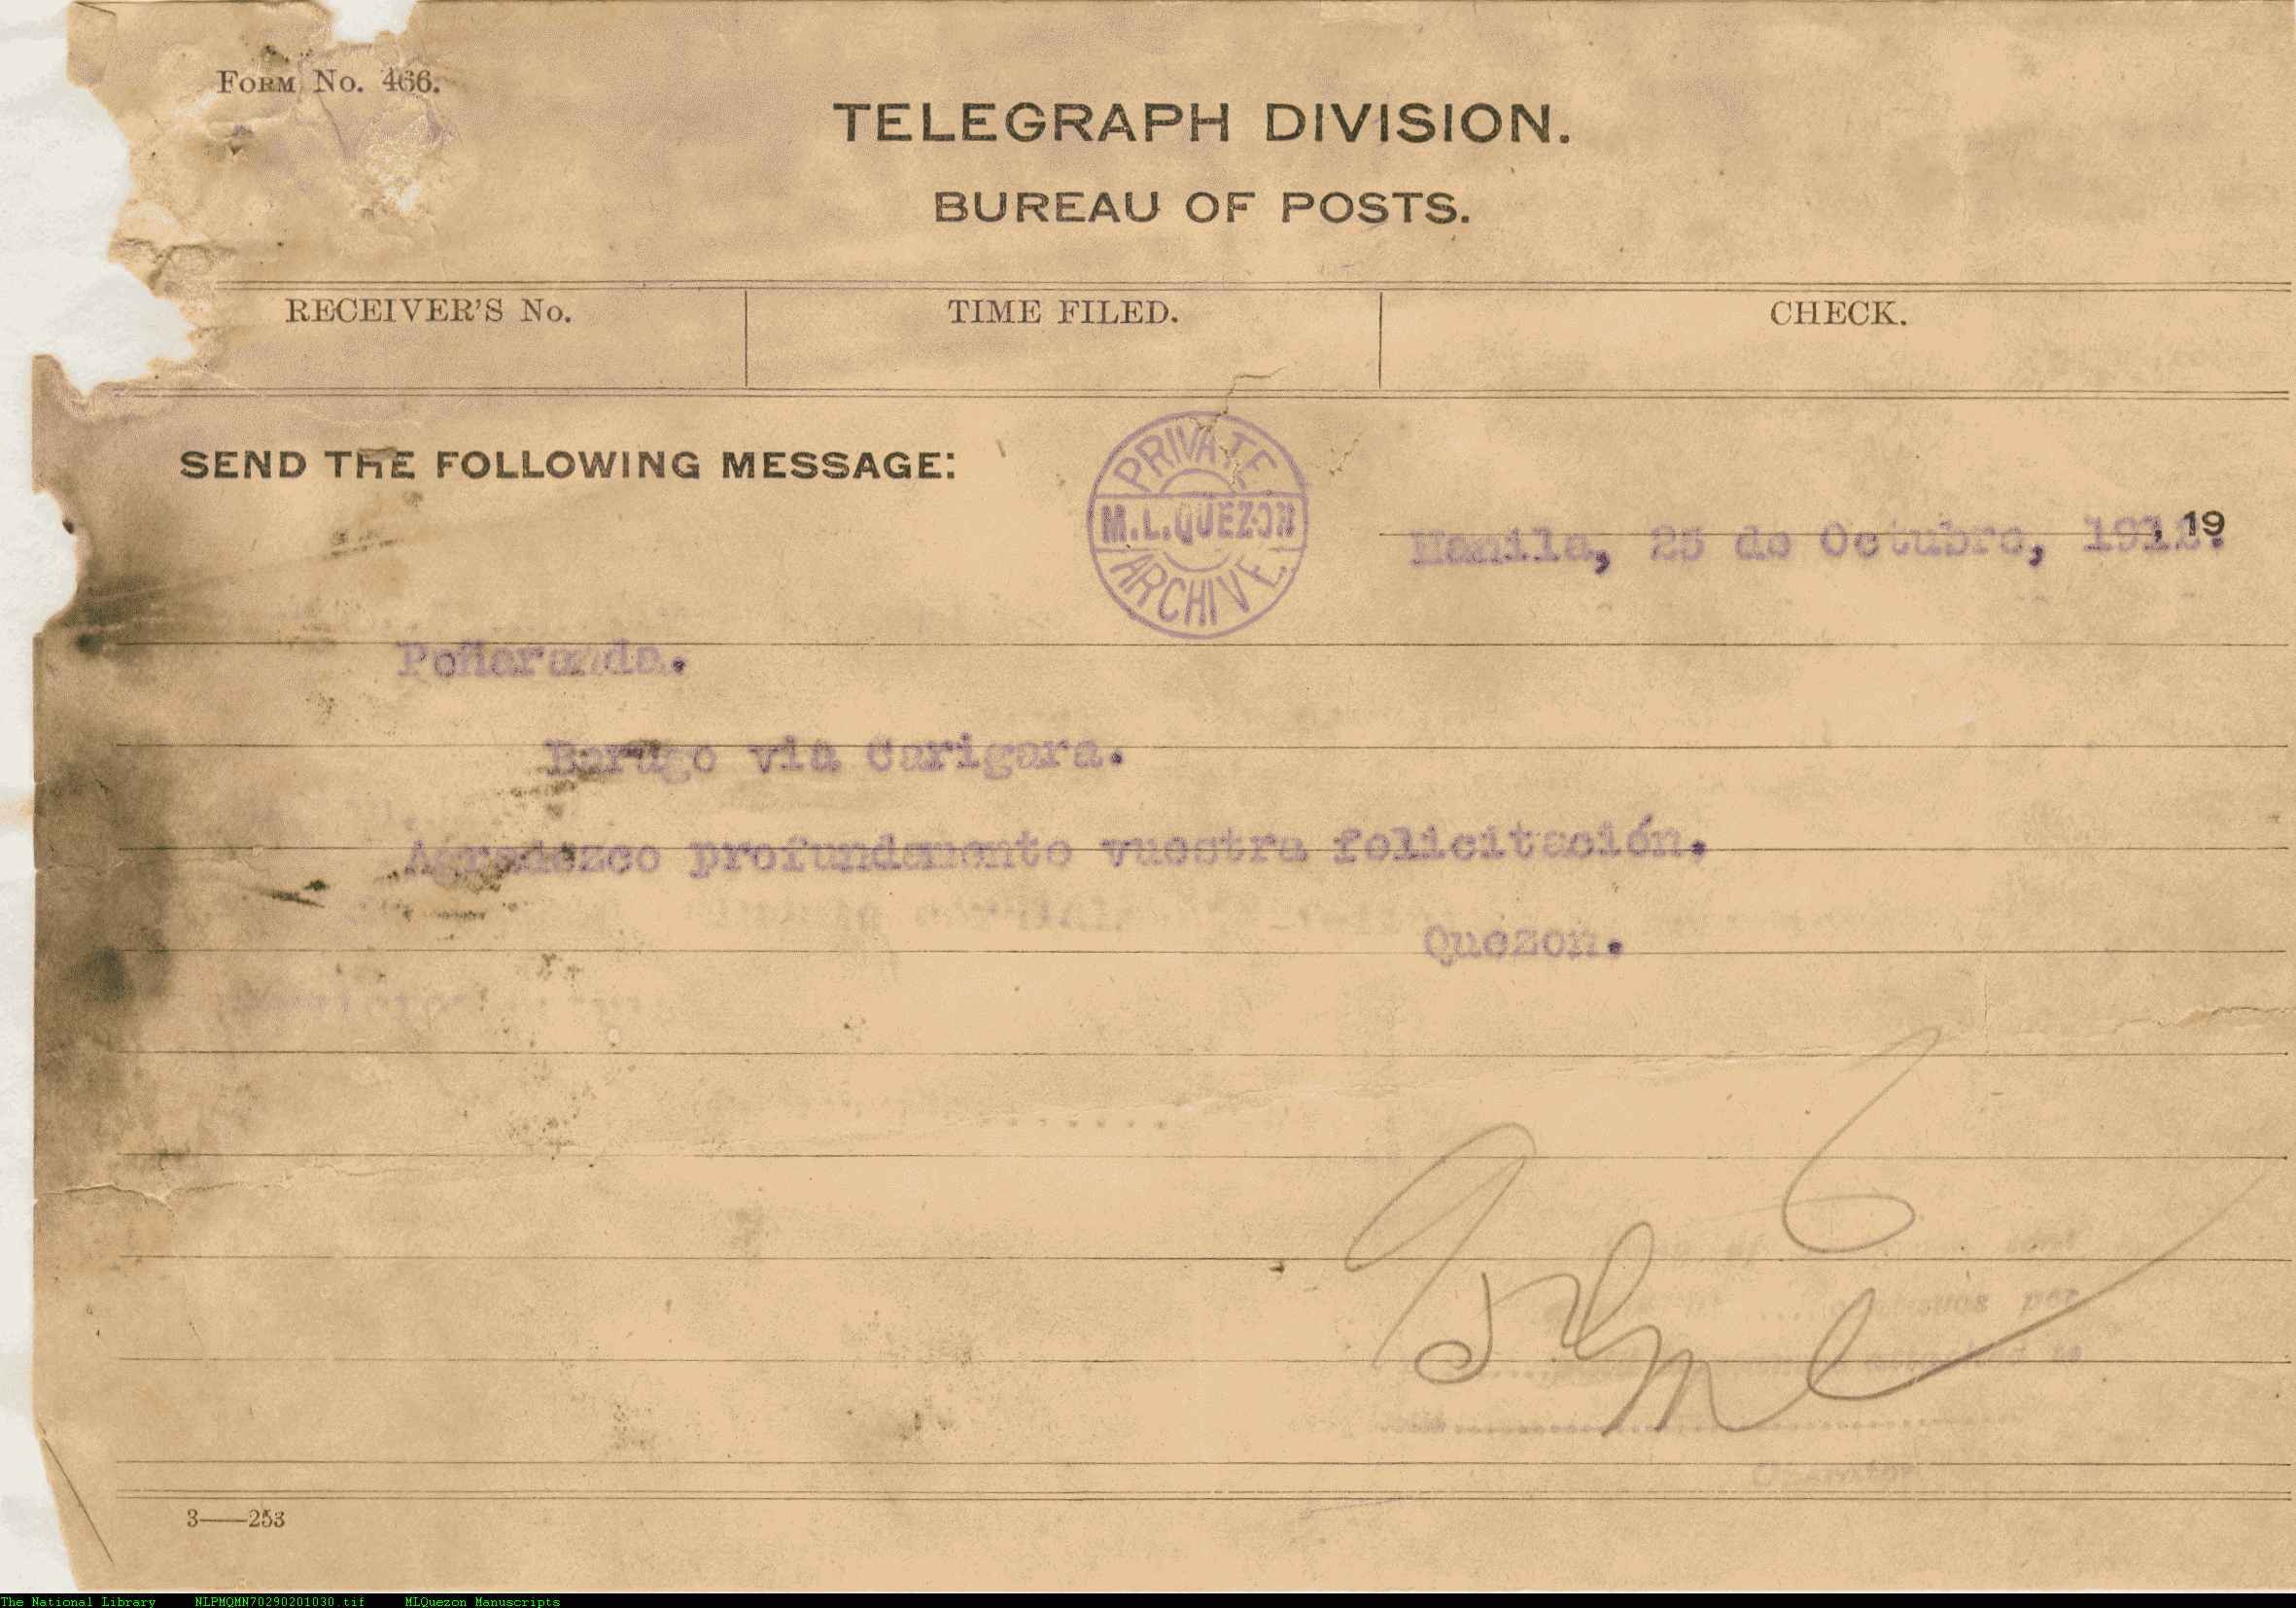 FORM No. 466.
TELEGRAPH DIVISION.
BUREAU OF POSTS.
RECEIVER'S No. TIME FILED. CHECK.
SEND THE FOLLOWING MESSAGE:
PRIVATE
M.L.QUEZON
ARCHIVE
Manila, 25 de Octubre, 1912. , 19
Peñaranda.
Barugo via Carigara.
Agradezco profundamente vuestra felicitación.
Quezon.
Operator
3——253
The National Library NLPMQMN70290201030.tif MLQuezon Manuscripts